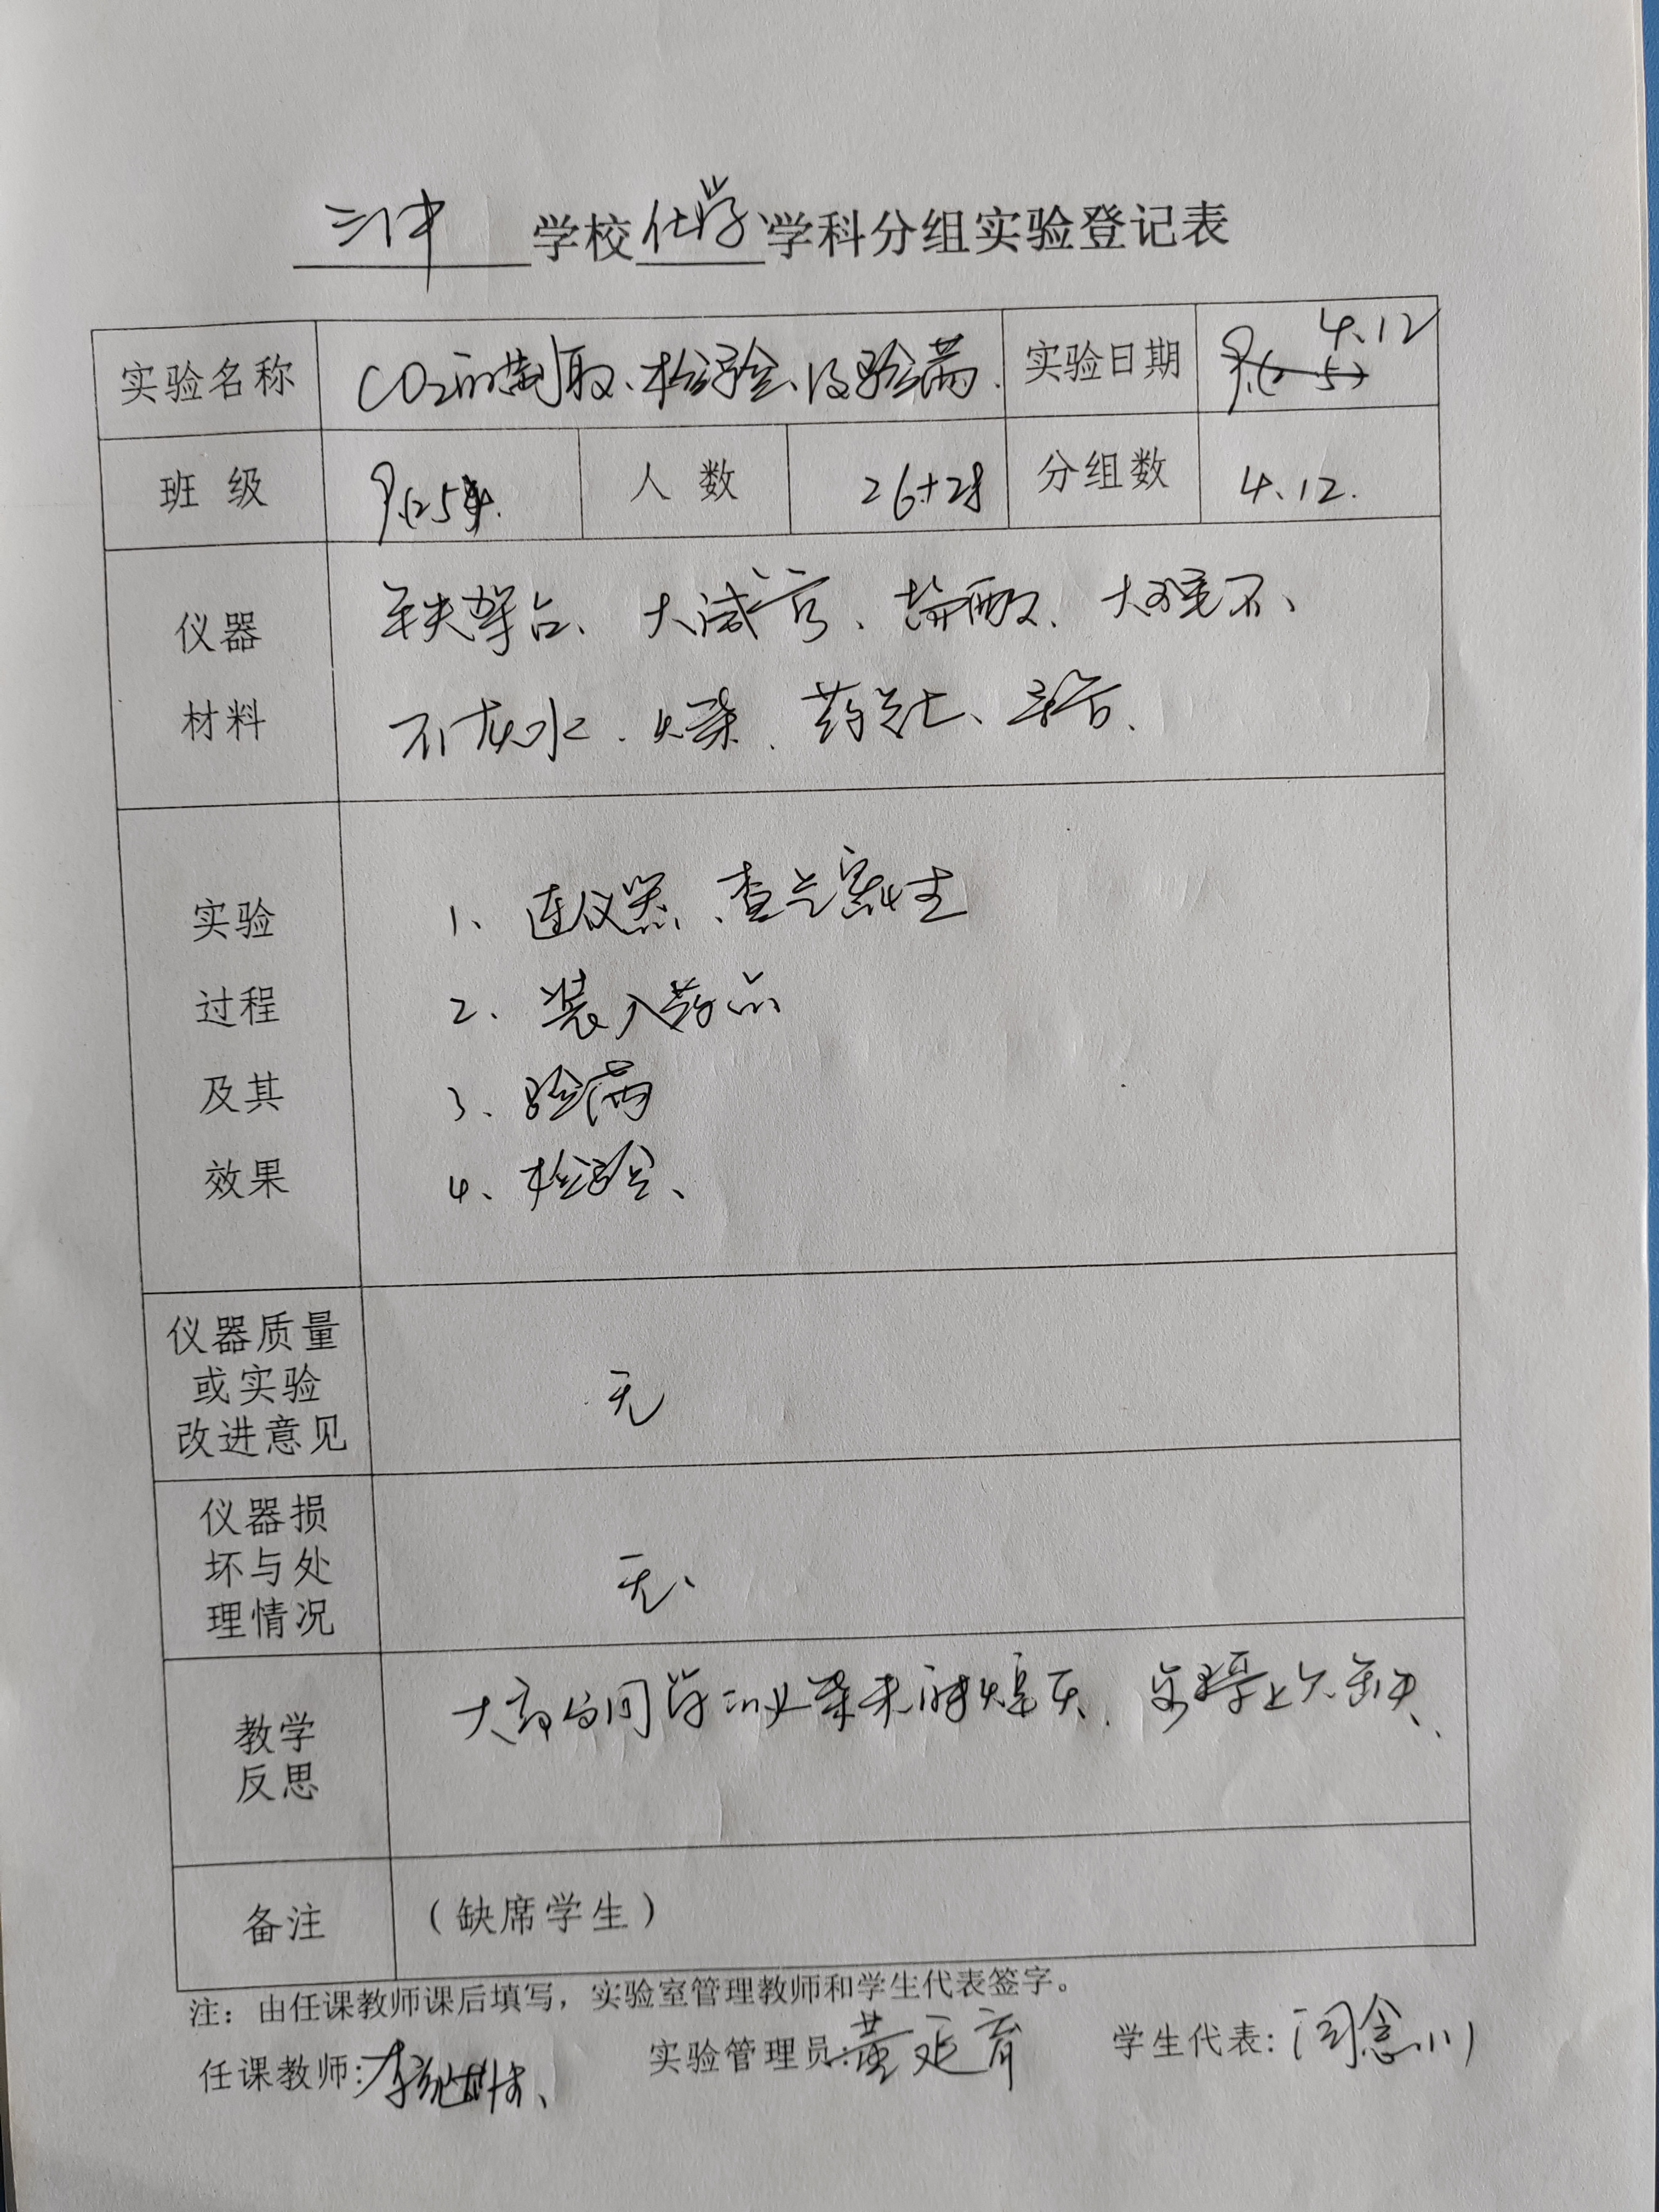 学校化学学科分组实验登记表
实验名称 CO2的制取、检验、及验满. 实验日期 4.12
班级 人数 26+28 分组数 4.12.
仪器材料 铁架台、大试管、盐酸、大理石、
石灰水、火柴、药匙、导管、
实验过程及其效果
1、连仪器、查气密性
2、装入药品
3、验满
4、检验、
仪器质量或实验改进意见 无
仪器损坏与处理情况 无、
教学反思 大部分同学
备注 (缺席学生)
注：由任课教师课后填写，实验室管理教师和学生代表签字。
任课教师: 实验管理员:黄延育 学生代表: